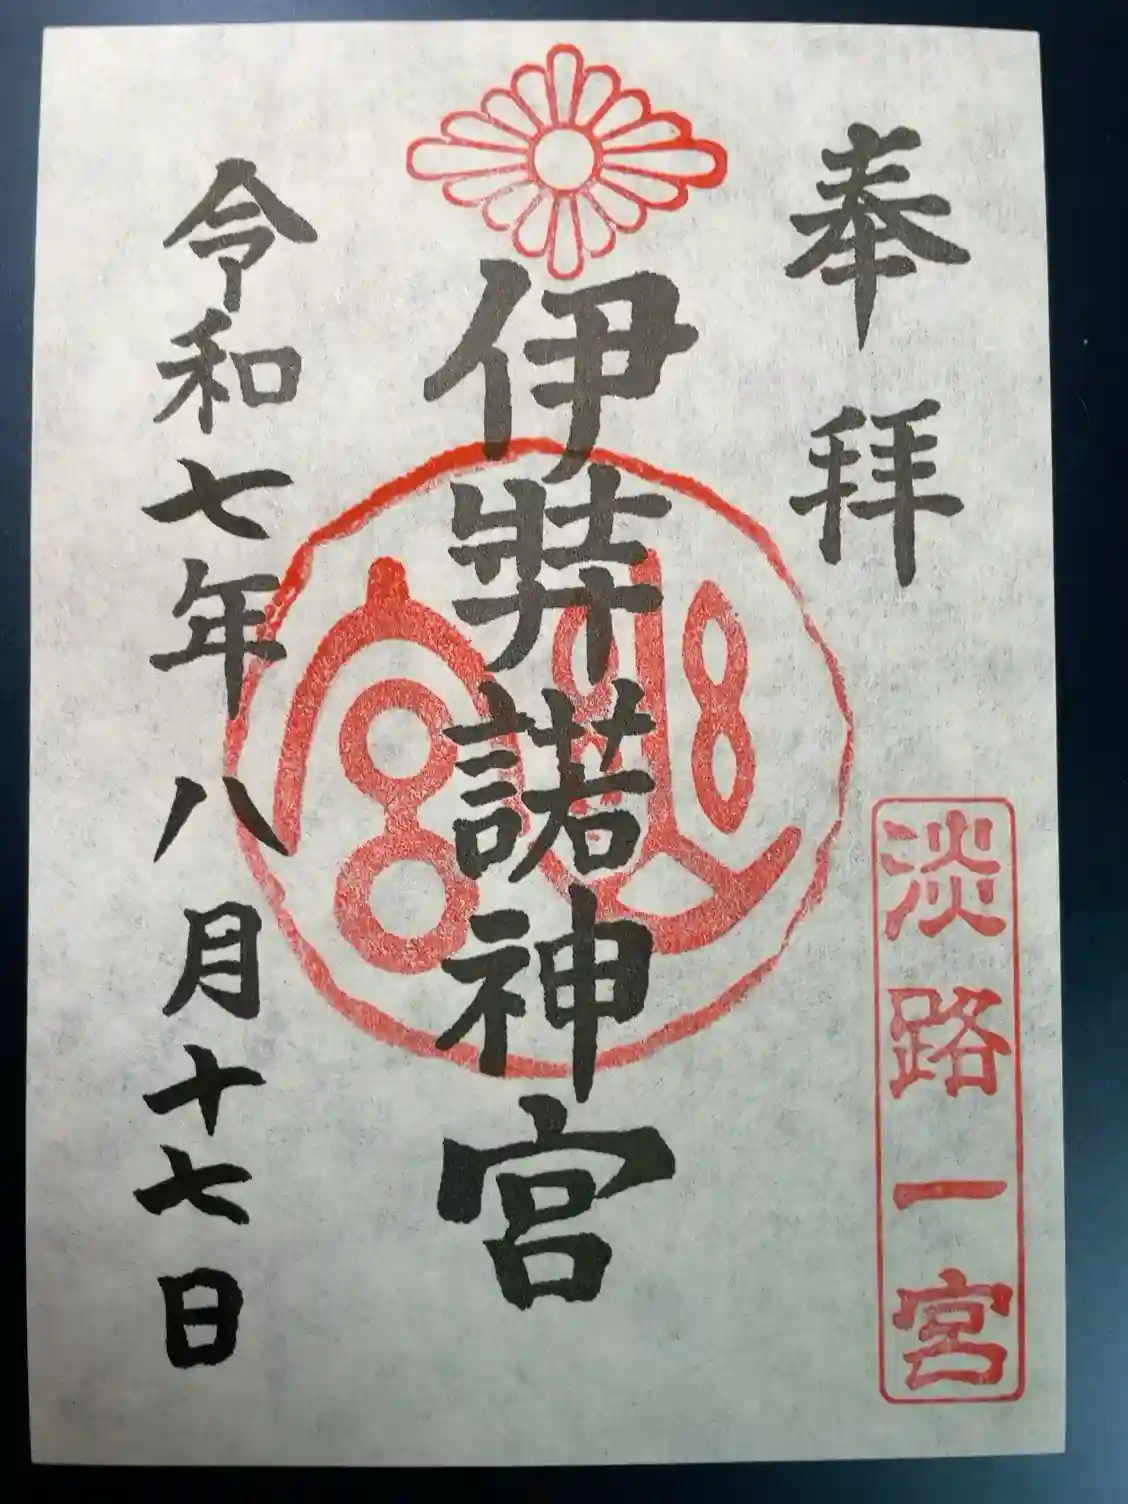 奉拝
淡路一宮
伊弉諾神宮
令和七年八月十七日